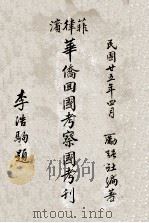 菲律濱
華僑回國考察團考刊
民國廿五年四月
勵語社編著
李浩駒題